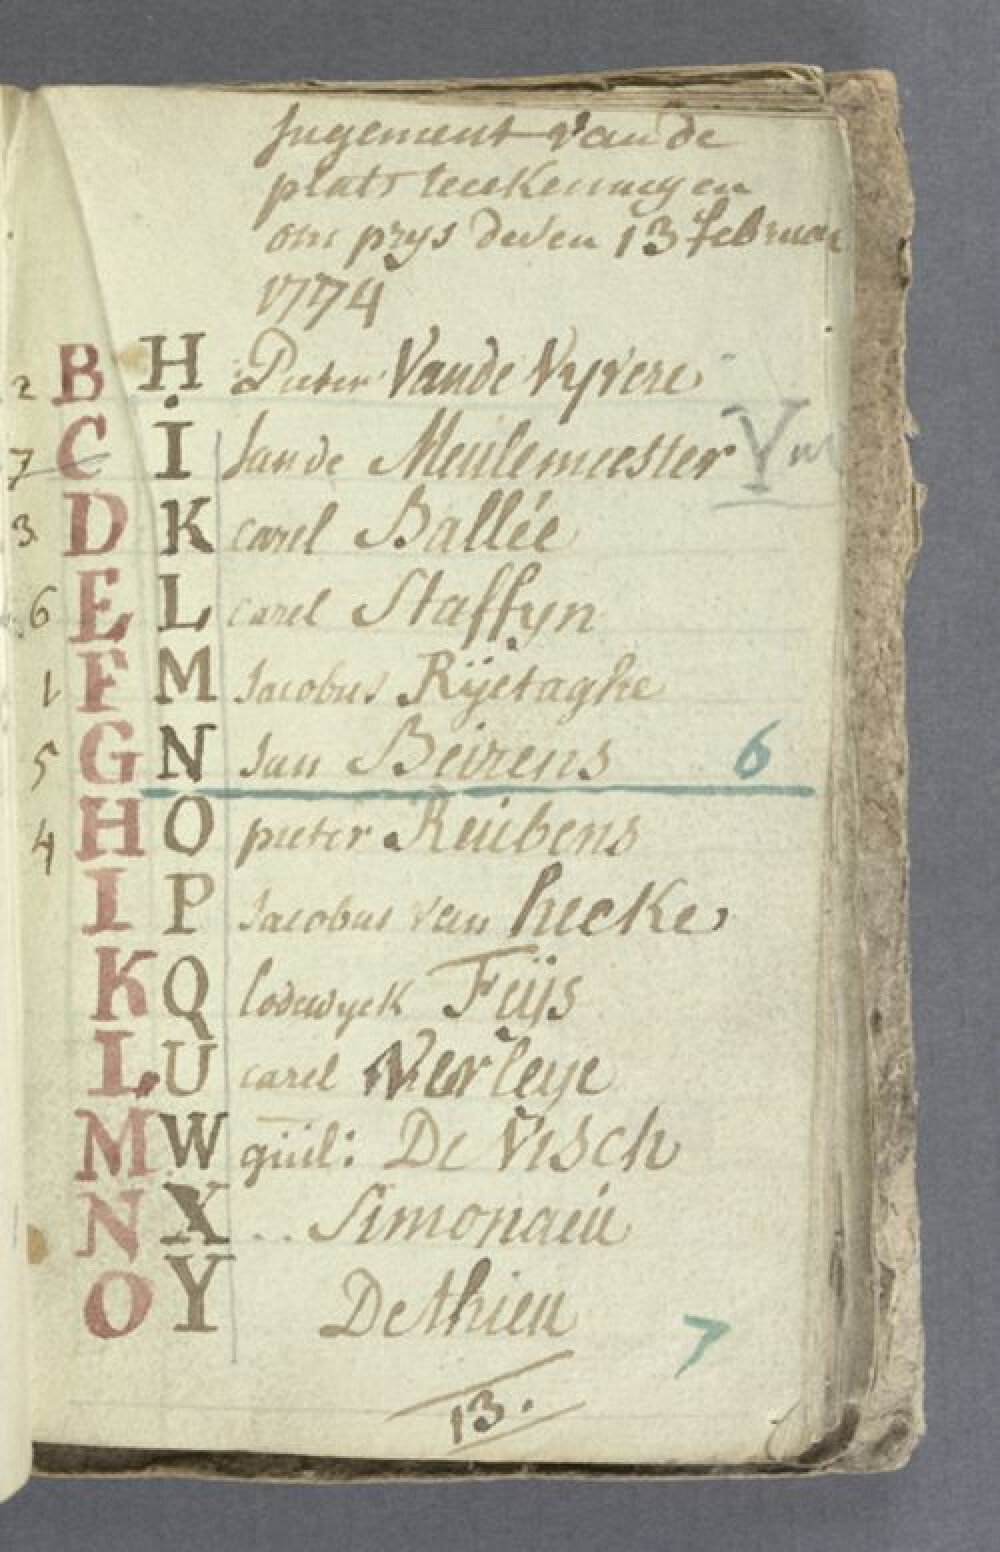 Jugement van de
plats teeckeningen
om prys desen 13 februari
1774
2 B H Pieter Vande Vyvere
7 C I Jan de Meulemeester
3 D K carel Ballée
6 E L carel Staffyn
1 F M Jacobus Rÿetaghe
5 G N Jan Beirens 6
4 H O pieter Reübens
I P Jacobus van hecke
K Q lodewyck Feÿs
L U carel Verleye
M W guil: De Visch
N X .. Simonaeü
O Y De thieu
7
13.